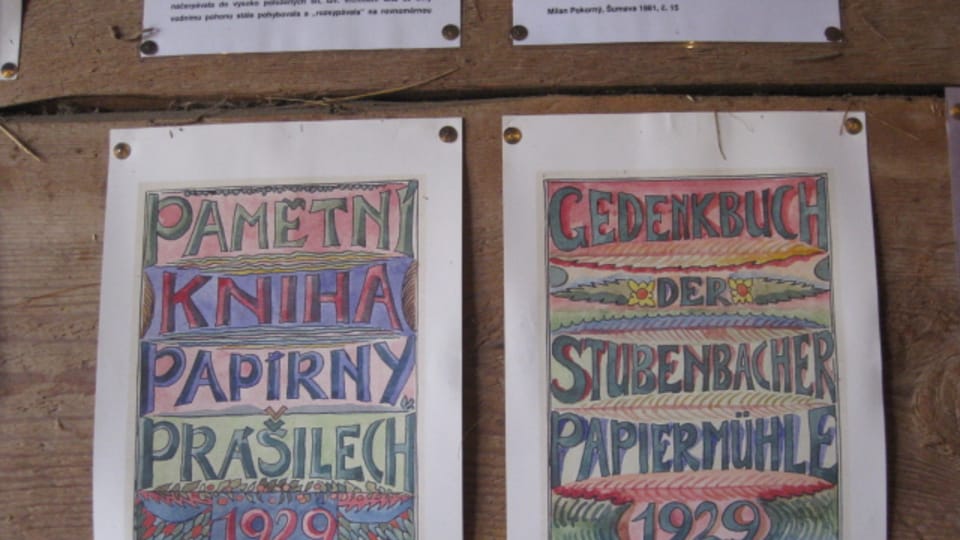 načerpávala do vysoko položených
vodnímu pohonu stále pohybovala a „rozsypávala“ na rovnoměrnou
Milan Pokorný, Šumava 1981, č. 15
PAMĚTNÍ
KNIHA
PAPÍRNY
PRÁŠILECH
1929
GEDENKBUCH
DER
STUBENBACHER
PAPIERMÜHLE
1929